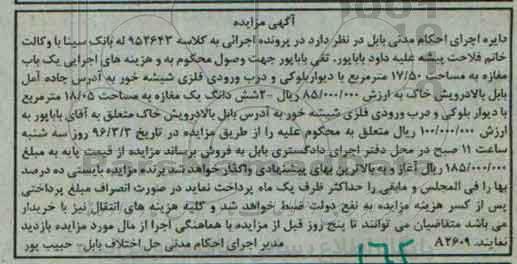 آگهی مزایده
دایره اجرای احکام مدنی بابل در نظر دارد در پرونده اجرائی به کلاسه ۹۵۲۶۴۳ له بانک سینا با وکالت
خانم فلاحت پیشه علیه داود باباپور، تقی باباپور جهت وصول محکوم به و هزینه های اجرایی یک باب
مغازه به مساحت ۱۷/۵۰ مترمربع با دیواربلوکی و درب ورودی فلزی شیشه خور به آدرس جاده آمل
بابل بالادرویش خاک به ارزش ۸۵/۰۰۰/۰۰۰ ریال -۲شش دانگ یک مغازه به مساحت ۱۸/۰۵ مترمربع
با دیوار بلوکی و درب ورودی فلزی شیشه خور به آدرس بابل بالادرویش خاک متعلق به آقای باباپور به
ارزش ۱۰۰/۰۰۰/۰۰۰ ریال متعلق به محکوم علیه را از طریق مزایده در تاریخ ۹۶/۳/۳ روز سه شنبه
ساعت ۱۱ صبح در محل دفتر اجرای دادگستری بابل به فروش برساند مزایده از قیمت پایه به مبلغ
۱۸۵/۰۰۰/۰۰۰ ریال آغاز و به بالاترین بهای پیشنهادی واگذار خواهد شد برنده مزایده بایستی ده درصد
بها را فی المجلس و مابقی را حداکثر ظرف یک ماه پرداخت نماید در صورت انصراف مبلغ پرداختی
پس از کسر هزینه مزایده به نفع دولت ضبط خواهد شد و کلیه هزینه های انتقال نیز با خریدار
می باشد متقاضیان می توانند تا پنج روز قبل از مزایده با هماهنگی اجرا از مال مورد مزایده بازدید
نمایند. ۸۲۶۰۹ مدیر اجرای احکام مدنی حل اختلاف بابل- حبیب پور
۱۶۲